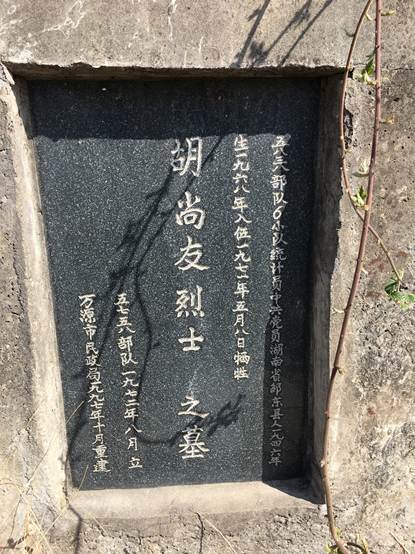 五八三八部队6小队统计员中共党员湖南省邵东县人一九四六年
生一九六八年入伍一九七一年五月八日牺牲
胡尚友烈士 之墓
五七五八部队一九七二年八月立
万源市民政局一九九七年十月重建